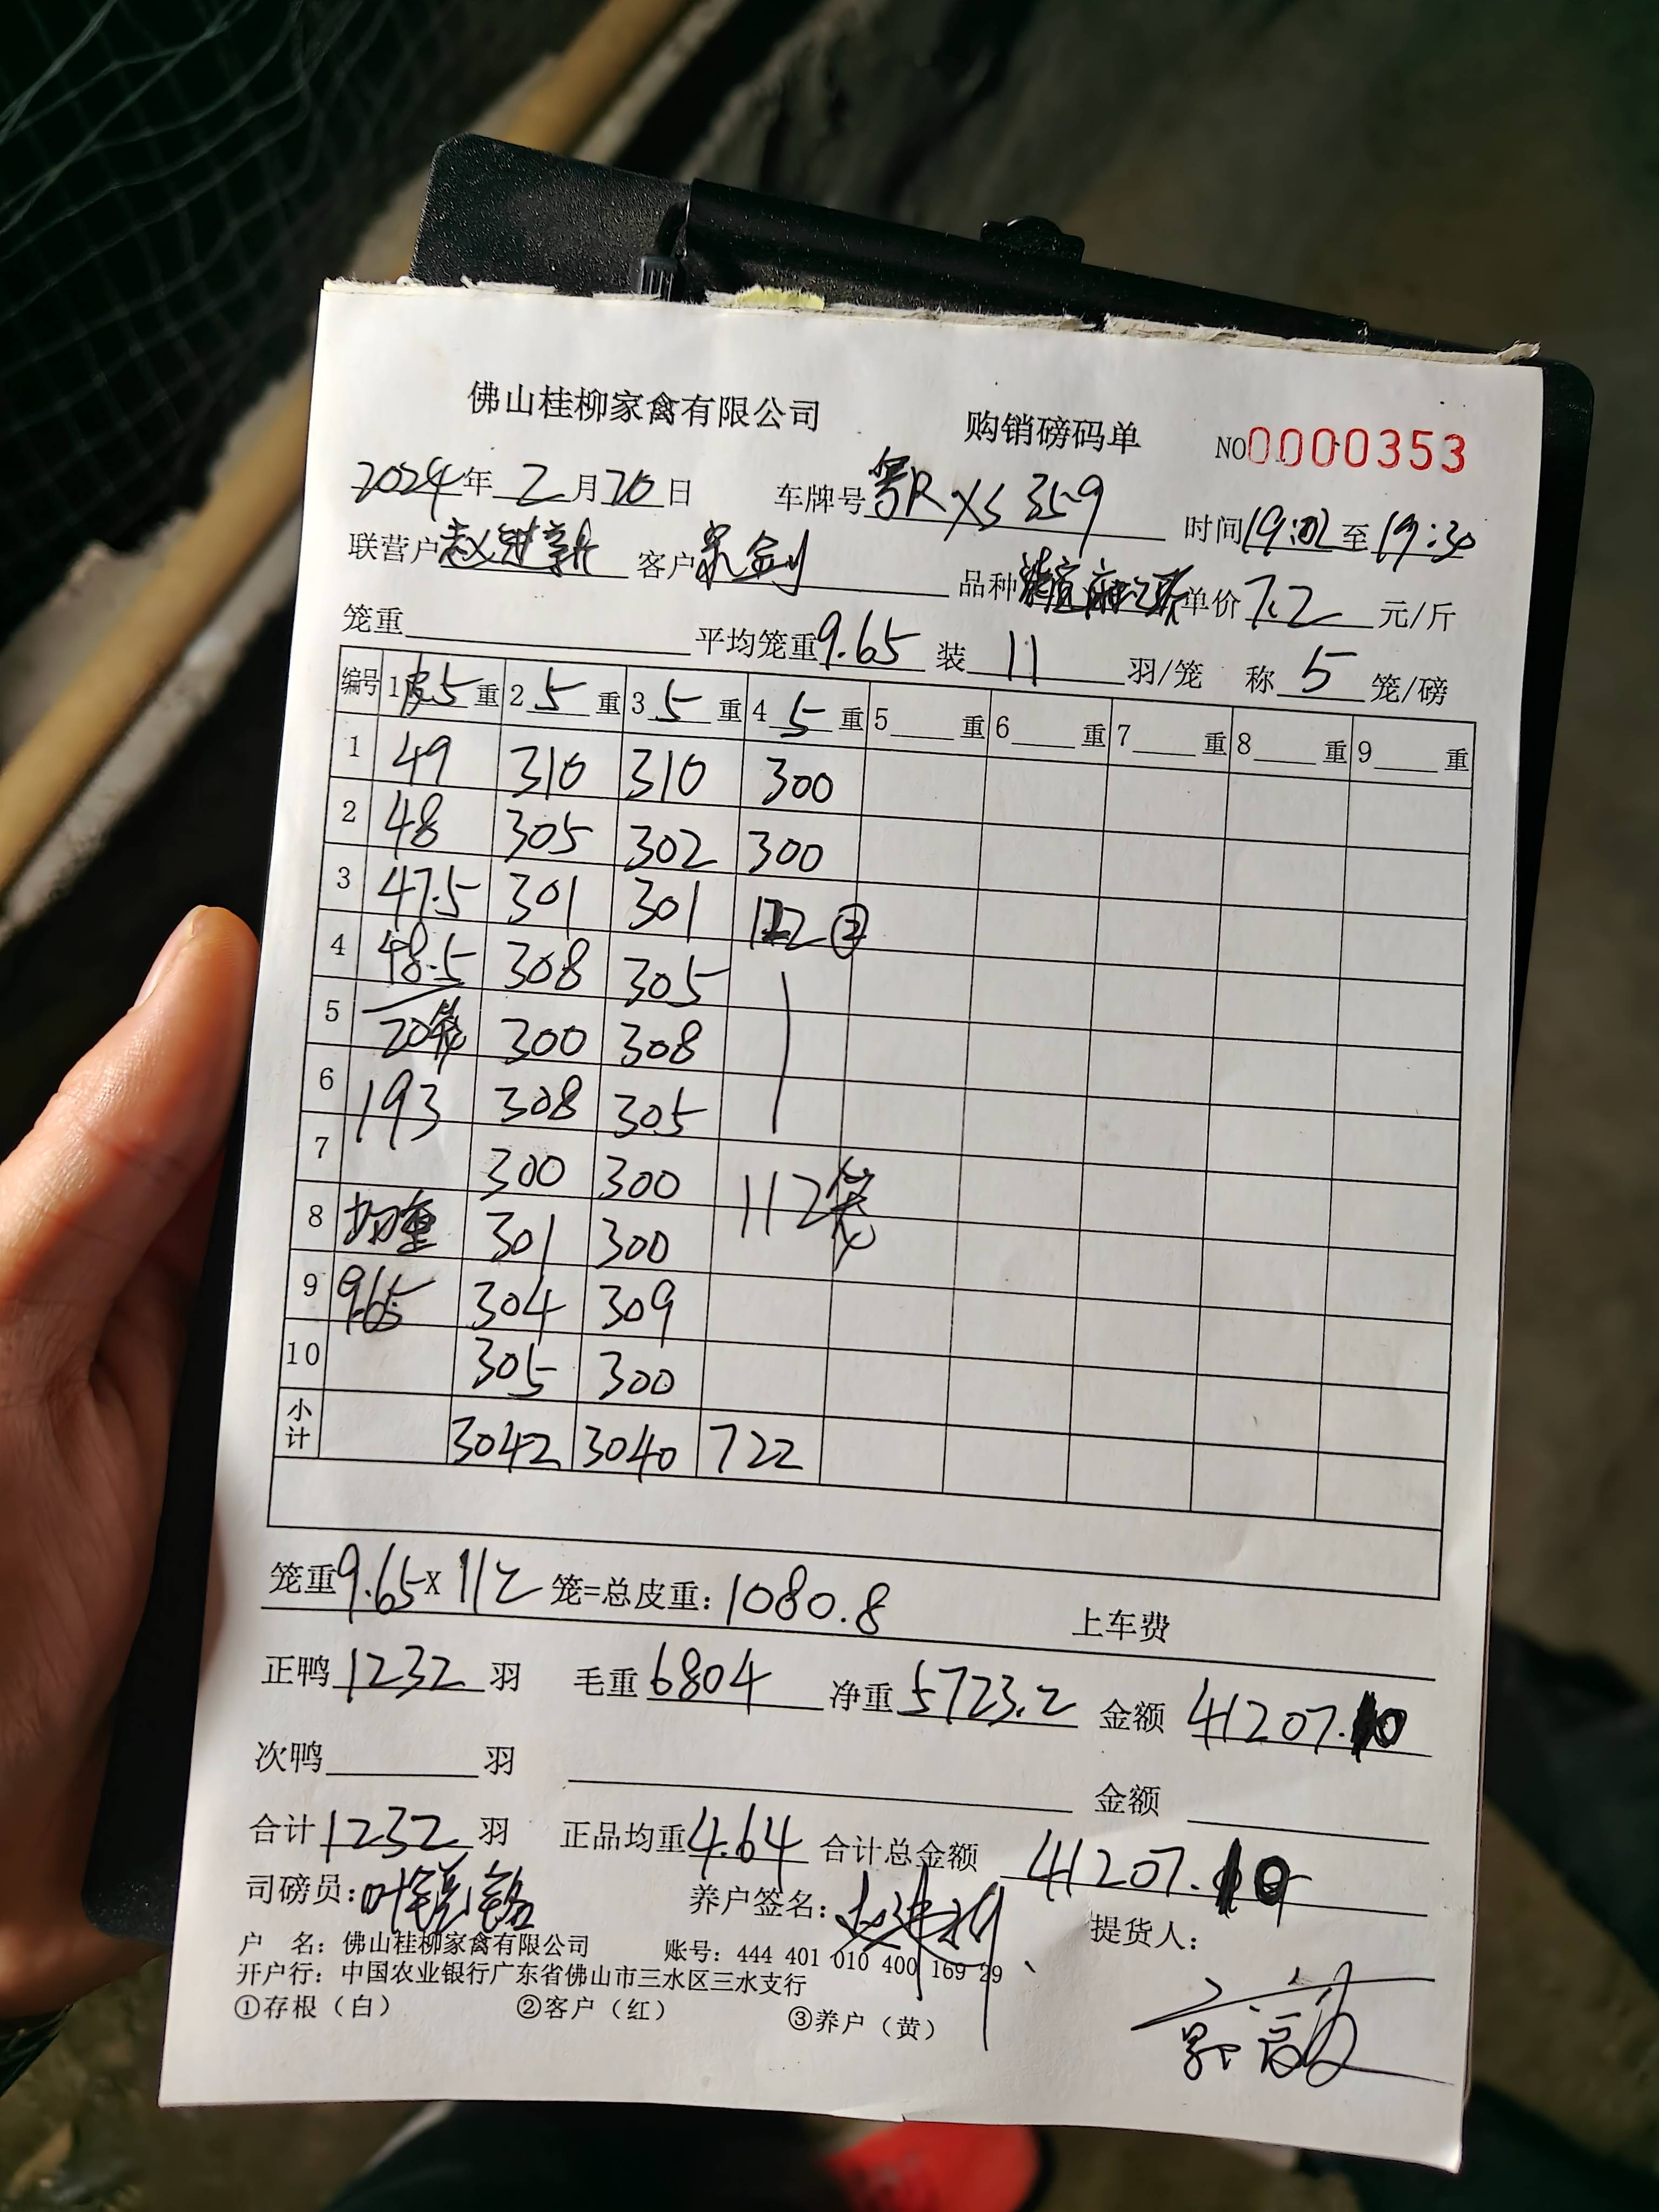 佛山桂柳家禽有限公司 购销磅码单 NO0000353
2024年2月20日 车牌号粤RXS359 时间19:02至19:30
联营户赵进新 客户 品种 单价7.2元/斤
笼重 平均笼重9.65装11羽/笼 称5笼/磅
编号 1皮5重 2 5重 3 5重 4 5重 5 重 6 重 7 重 8 重 9 重
1 49 310 310 300
2 48 305 302 300
3 47.5 301 301 122②
4 48.5 308 305
5 20笼 300 308
6 193 308 305
7 300 300 112笼
8 均重 301 300
9 9.65 304 309
10 305 300
小计 3042 3040 722
笼重9.65x112笼=总皮重：1080.8 上车费
正鸭1232羽 毛重6804 净重5723.2 金额41207.0
次鸭 羽 金额
合计1232羽 正品均重4.64 合计总金额41207.0
司磅员： 养户签名： 提货人：
户 名：佛山桂柳家禽有限公司 账号：444 401 010 400 169 29
开户行：中国农业银行广东省佛山市三水区三水支行
①存根（白） ②客户（红） ③养户（黄）